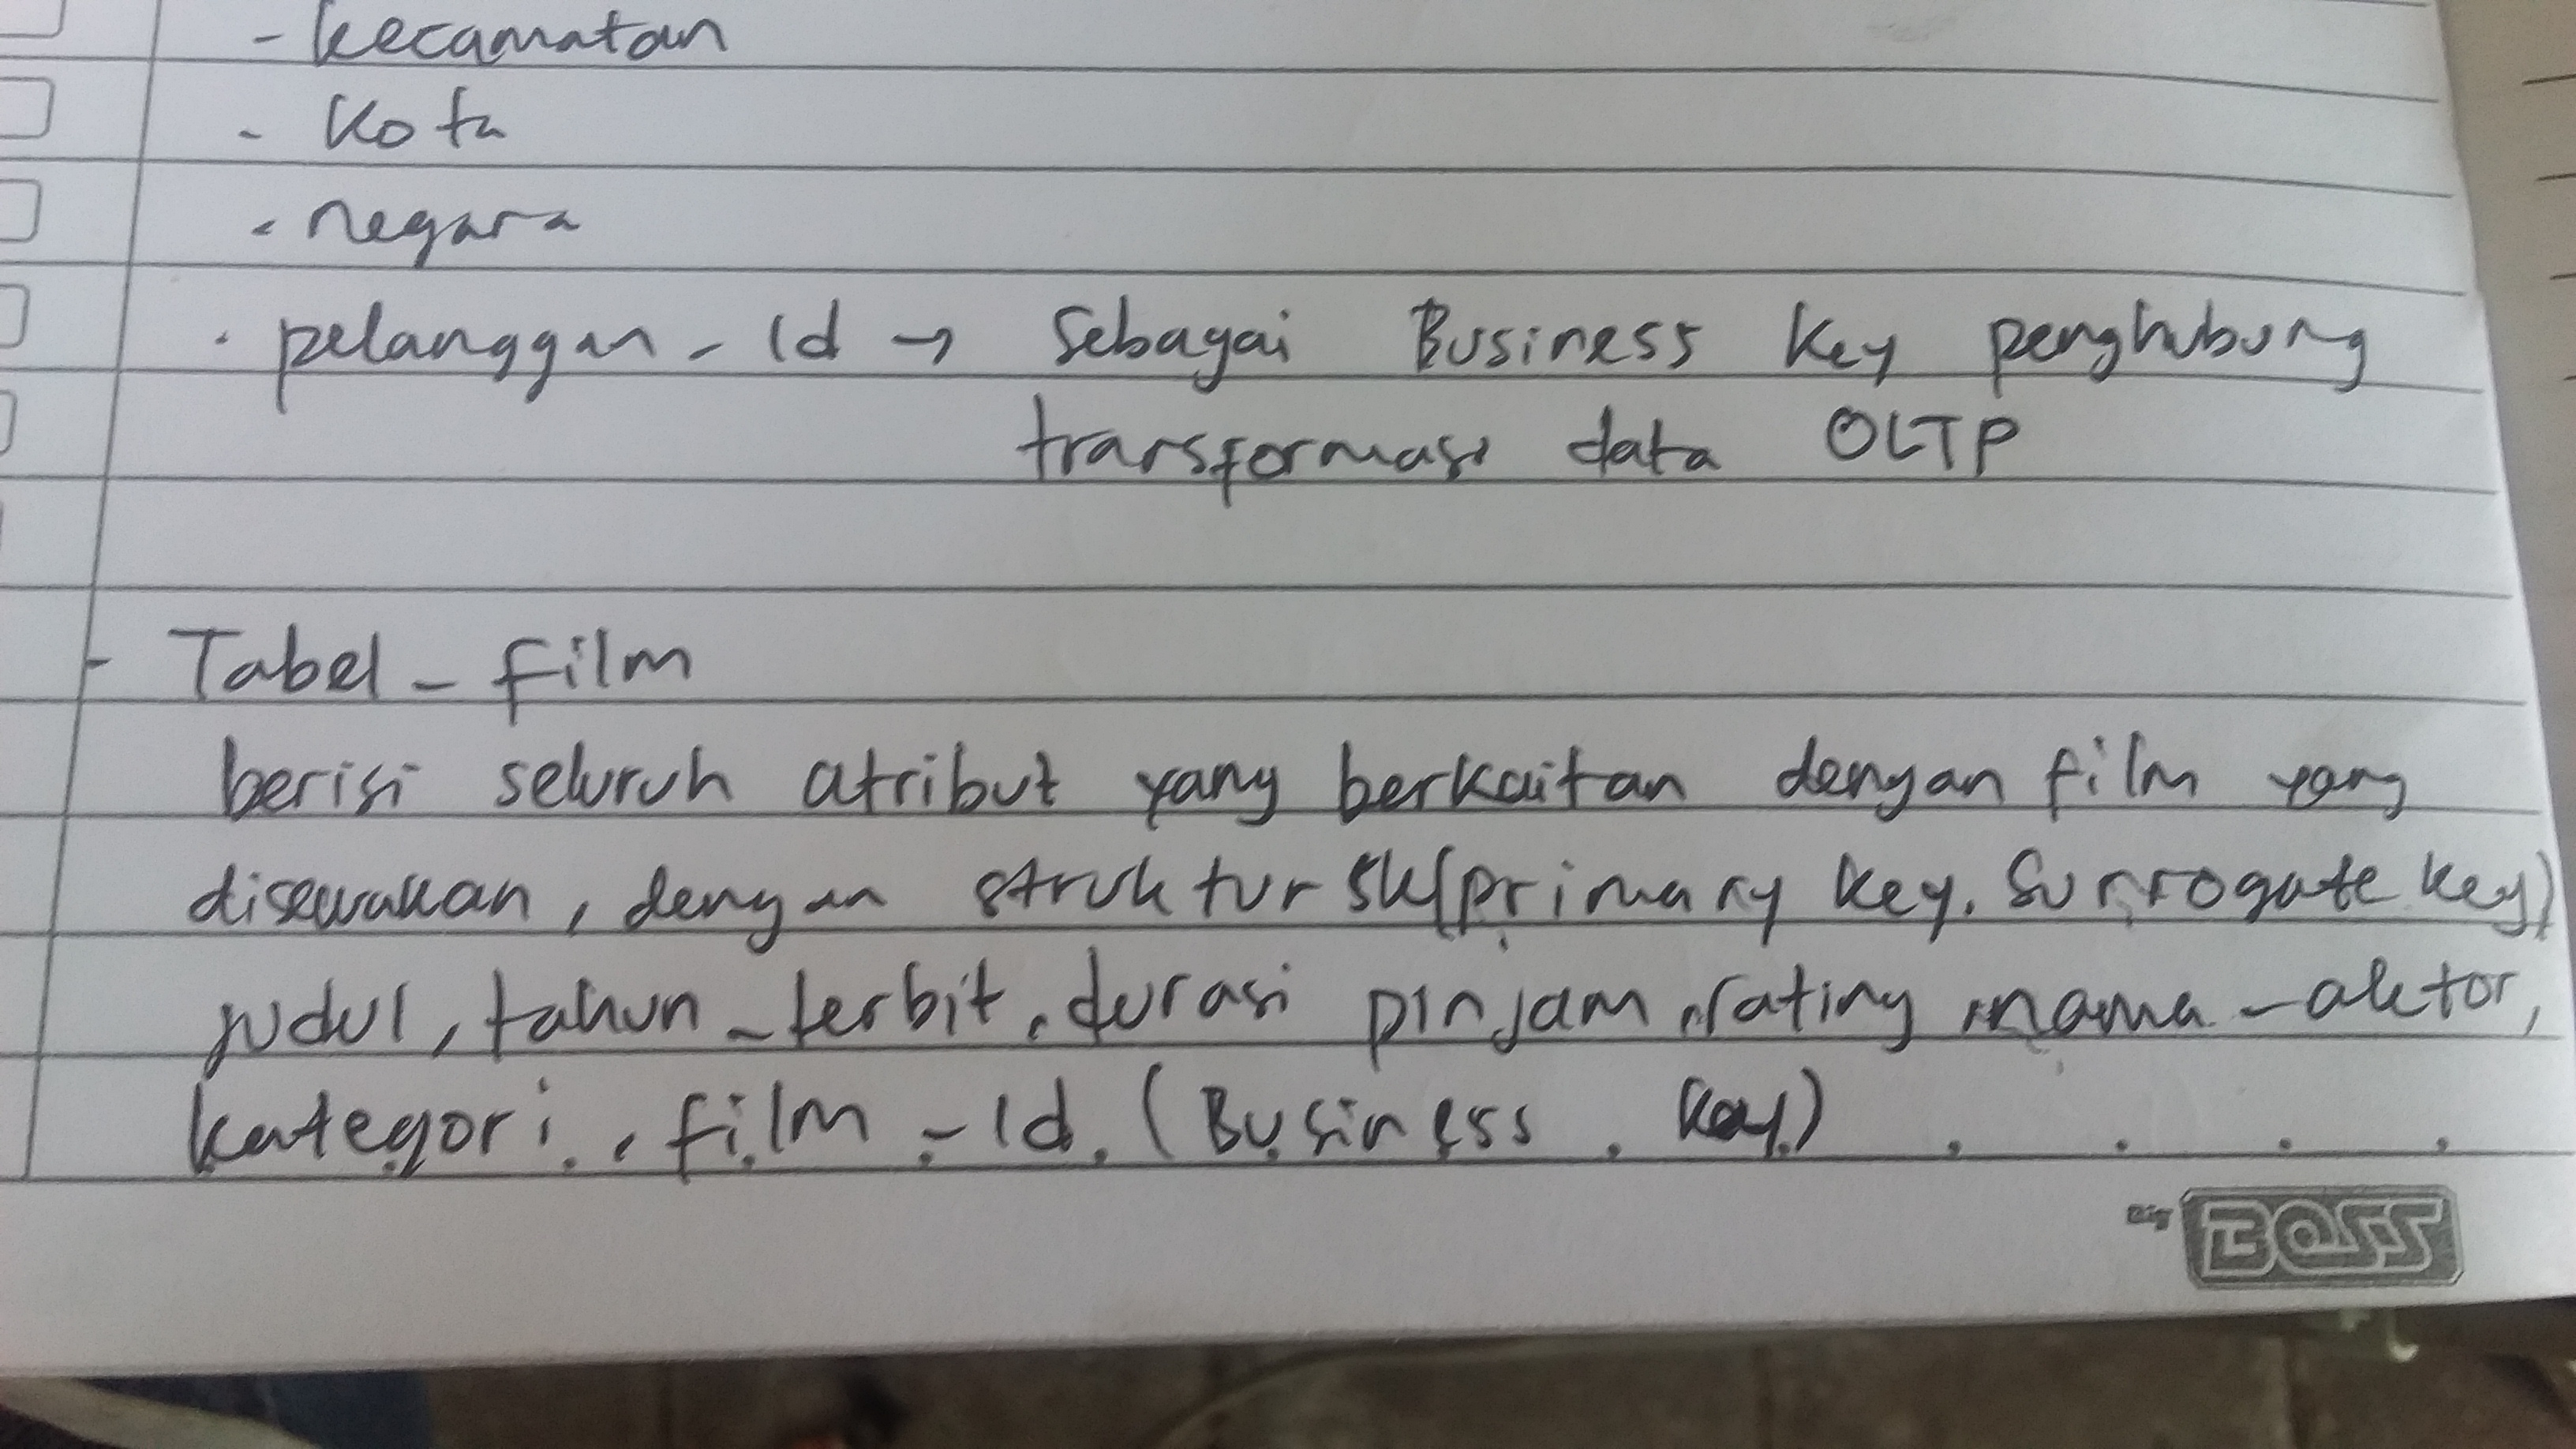 - kecamatan
- Kota
- negara
. pelanggan - Id → Sebagai Business Key penghubung
transformasi data OLTP
- Tabel - film
berisi seluruh atribut yang berkaitan dengan film yang
disewakan, dengan struktur SK(primary key, Surrogate key)
judul, tahun - terbit, durasi pinjam, rating, nama - aktor,
kategori, film - Id (Business Key)
Big BOSS